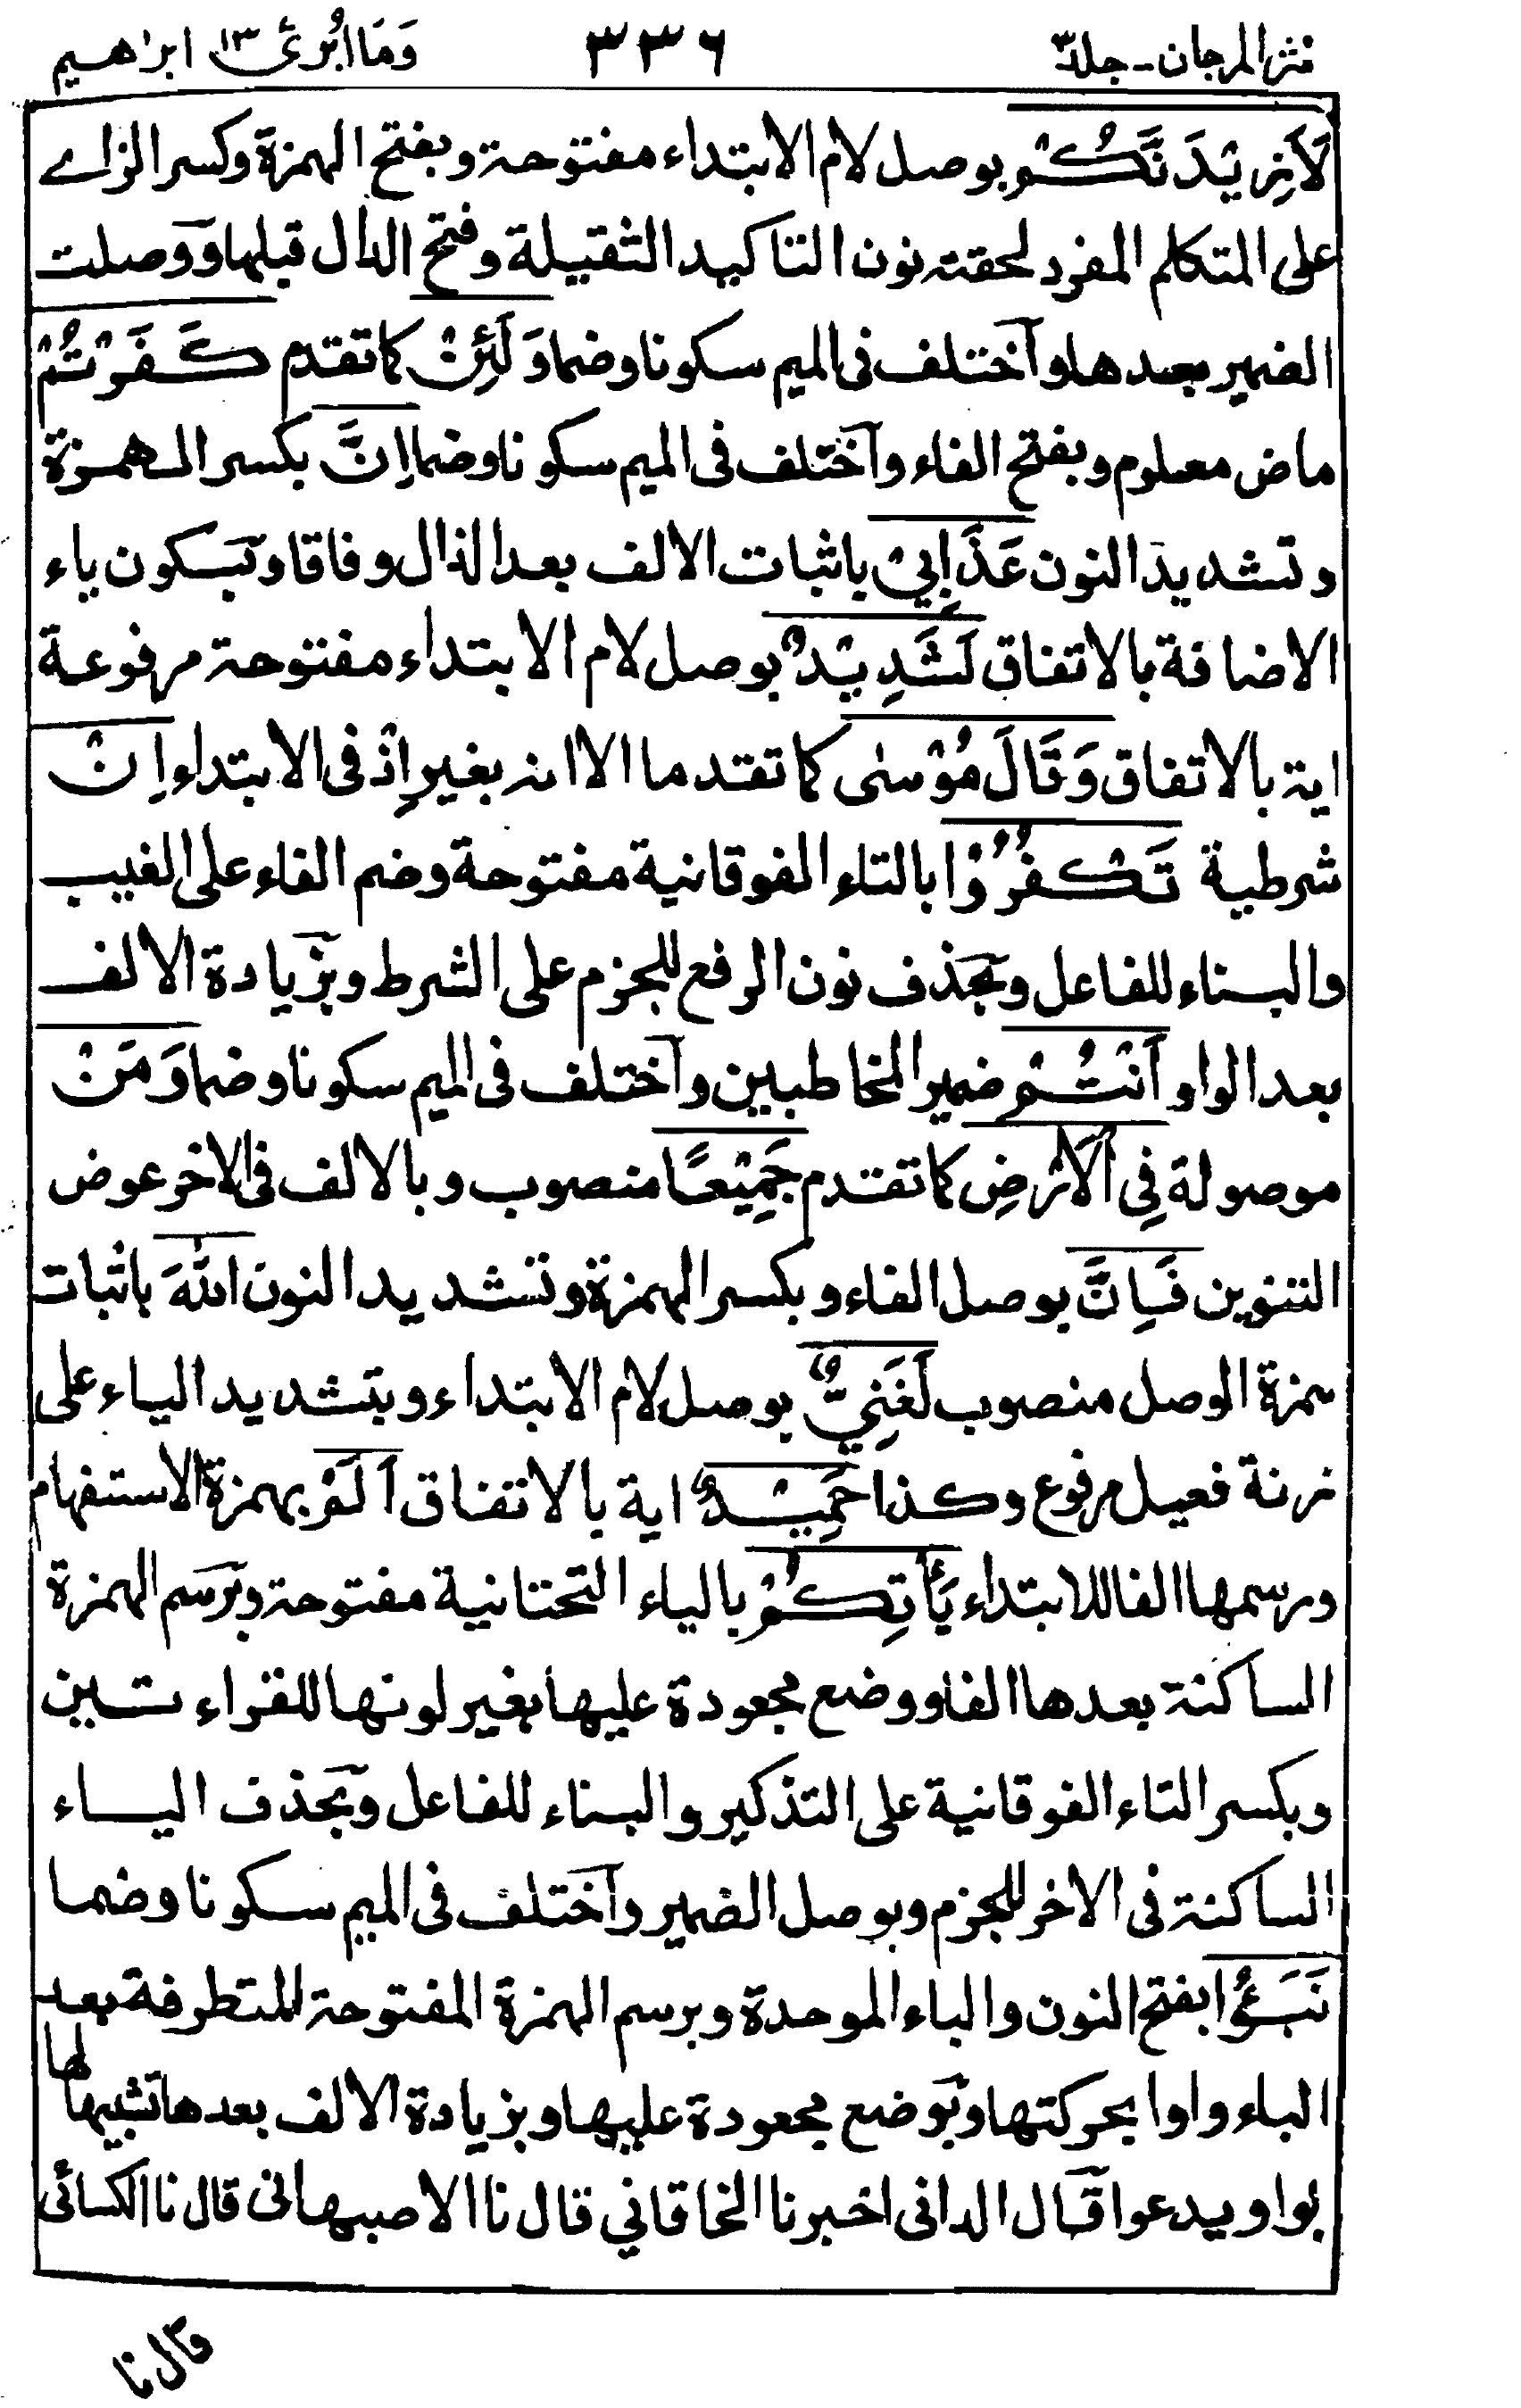 نثر المرجان - جلد ٣ ٣٣٦ وَمَا اُبَرِّئُ ١٣ ابراهيم
لَاَزِيْدَنَّكُمْ بوصل لام الابتداء مفتوحة وبفتح الهمزة وكسر الزاے
على المتكلم المفرد لحقته نون التاكيد الثقيلة وفتح الدال قبلها ووصلت
الضمير بعدها واختلف فى الميم سكونا وضما وَلَئِنْ كما تقدم كَفَرْتُمْ
ماض معلوم وبفتح الفاء واختلف فى الميم سكونا وضما اِنَّ بكسر الهمزة
وتشديد النون عَذَابِيْ باثبات الالف بعد الذال وفاقا وبسكون ياء
الاضافة بالاتفاق لَشَدِيْدٌ بوصل لام الابتداء مفتوحة مرفوعة
اية بالاتفاق وَقَالَ مُوْسٰى كما تقدما الا انه بغير اِذْ فى الابتداء اِنْ
شرطية تَكْفُرُوْا بالتاء الفوقانية مفتوحة وضم الفاء على الغيب
والبناء للفاعل وبحذف نون الرفع للجزم على الشرط وبزيادة الالف
بعد الواو اَنْتُمْ ضمير المخاطبين واختلف فى الميم سكونا وضما وَمَنْ
موصولة فِي الْاَرْضِ كما تقدم جَمِيْعًا منصوب وبالالف فى الاخر عوض
التنوين فَاِنَّ بوصل الفاء وبكسر الهمزة وتشديد النون اللّٰهَ باثبات
همزة الوصل منصوب لَغَنِيٌّ بوصل لام الابتداء وبتشديد الياء على
زنة فعيل مرفوع وكذا حَمِيْدٌ اية بالاتفاق اَلَمْ بهمزة الاستفهام
ورسمها الفا للابتداء يَأْتِكُمْ بالياء التحتانية مفتوحة وبرسم الهمزة
الساكنة بعدها الفا ووضع مجعودة عليها بغير لونها للقراء تين
وبكسر التاء الفوقانية على التذكير والبناء للفاعل وبحذف الياء
الساكنة فى الاخر للجزم وبوصل الضمير واختلف فى الميم سكونا وضما
نَبَؤُا بفتح النون والباء الموحدة وبرسم الهمزة المفتوحة المتطرفة بعد
الباء واوا بحركتها وبوضع مجعودة عليها وبزيادة الالف بعدها تشبيها لها
بواو يدعوا قال الدانى اخبرنا الخاقاني قال نا الاصبهانى قال نا الكسائى
قال نا